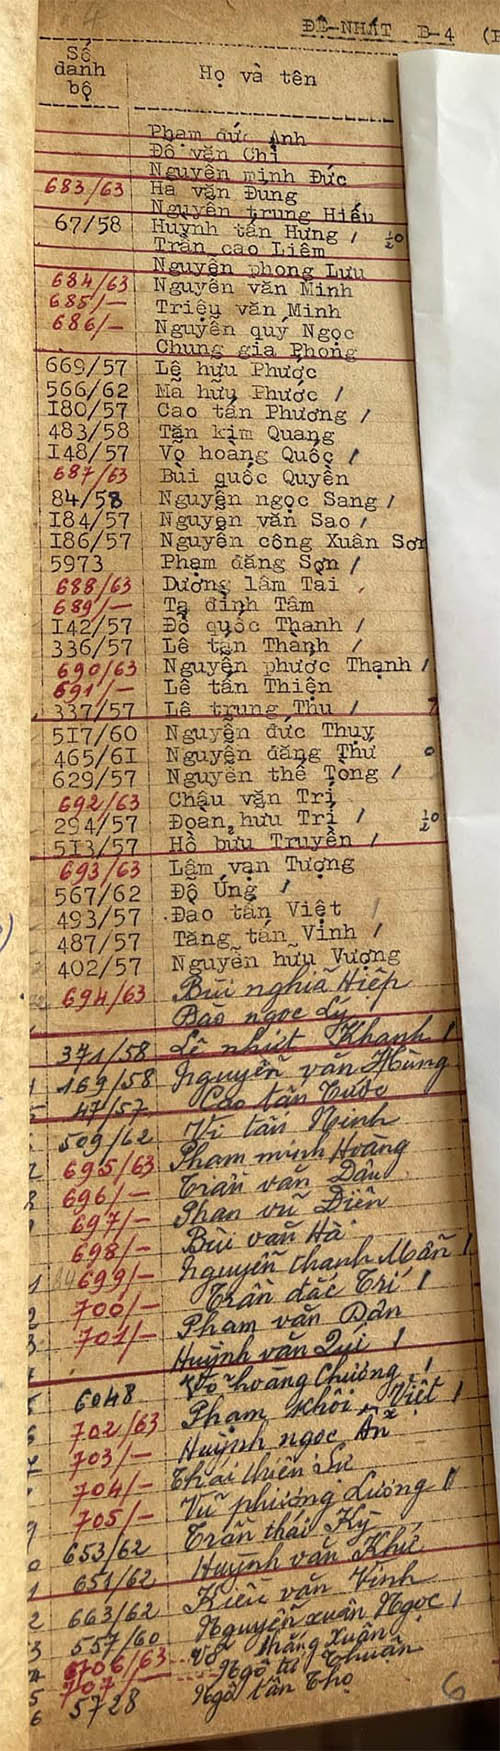 ĐỆ-NHẤT B-4
Số danh bộ Họ và tên
Phạm đức Anh
Đỗ văn Chi
Nguyễn minh Đức
683/63 Hà văn Dung
Nguyễn trung Hiếu
67/58 Huỳnh tấn Hưng /
Trần cao Liêm
Nguyễn phong Lưu
684/63 Nguyễn văn Minh
685/— Triệu văn Minh
686/— Nguyễn quý Ngọc
Chung gia Phong
669/57 Lê hữu Phước
566/62 Mã hữu Phước /
I80/57 Cao tấn Phương /
483/58 Tăn kim Quang
I48/57 Võ hoàng Quốc /
687/63 Bùi quốc Quyền
84/58 Nguyễn ngọc Sang /
I84/57 Nguyễn văn Sao /
I86/57 Nguyễn công Xuân Sơn
5973 Phạm đăng Sơn /
688/63 Dương lâm Tai
689/— Tạ đình Tâm
I42/57 Đỗ quốc Thanh /
336/57 Lê tấn Thành /
690/63 Nguyễn phước Thạnh /
691/— Lê tấn Thiện
337/57 Lê trung Thu /
5I7/60 Nguyễn đức Thuy
465/6I Nguyễn đăng Thư
629/57 Nguyễn thế Tòng /
692/63 Châu văn Trí
294/57 Đoàn hưu Trí /
5I3/57 Hồ bưu Truyền /
693/63 Lâm vạn Tượng
567/62 Đỗ Úng /
493/57 Đao tấn Việt /
487/57 Tăng tấn Vinh /
402/57 Nguyễn hữu Vượng
694/63 Bùi nghĩa Hiệp
Bao ngọc Lý
371/58 Lê nhứt Khanh /
169/58 Nguyễn văn Hùng
47/57 Cao tấn Tước
509/62 Vi tấn Ninh
695/63 Phạm minh Hoàng
696/— Trần văn Dân
697/— Phan vũ Điền
698/— Bùi văn Hà
699/— Nguyễn thanh Mẫn /
700/— Trần đắc Trí /
701/— Phạm văn Dân
Huỳnh văn Quí /
6048 Võ hoàng Chương /
702/63 Phạm khôi Việt /
703/— Huỳnh ngọc Ẩn
704/— Thái thiên Sư
705/— Vũ phương Lương
653/62 Trần thái Kỳ
651/62 Huỳnh văn Khứ
663/62 Kiều văn Vĩnh
557/60 Nguyễn xuân Ngọc /
706/63 Võ thăng Xuân
707/— Ngô tú Thuận
5728 Ngô tấn Thọ
6